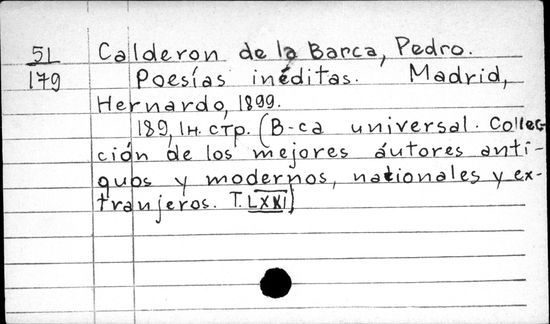 51 Calderon de la Barca, Pedro.
179 Poesías inéditas. Madrid,
Hernardo, 1899.
189, 1н. стр. (B-ca universal. Collec-
ción de los mejores áutores anti-
guos y modernos, nationales y ex-
tranjeros. T. LXXI)